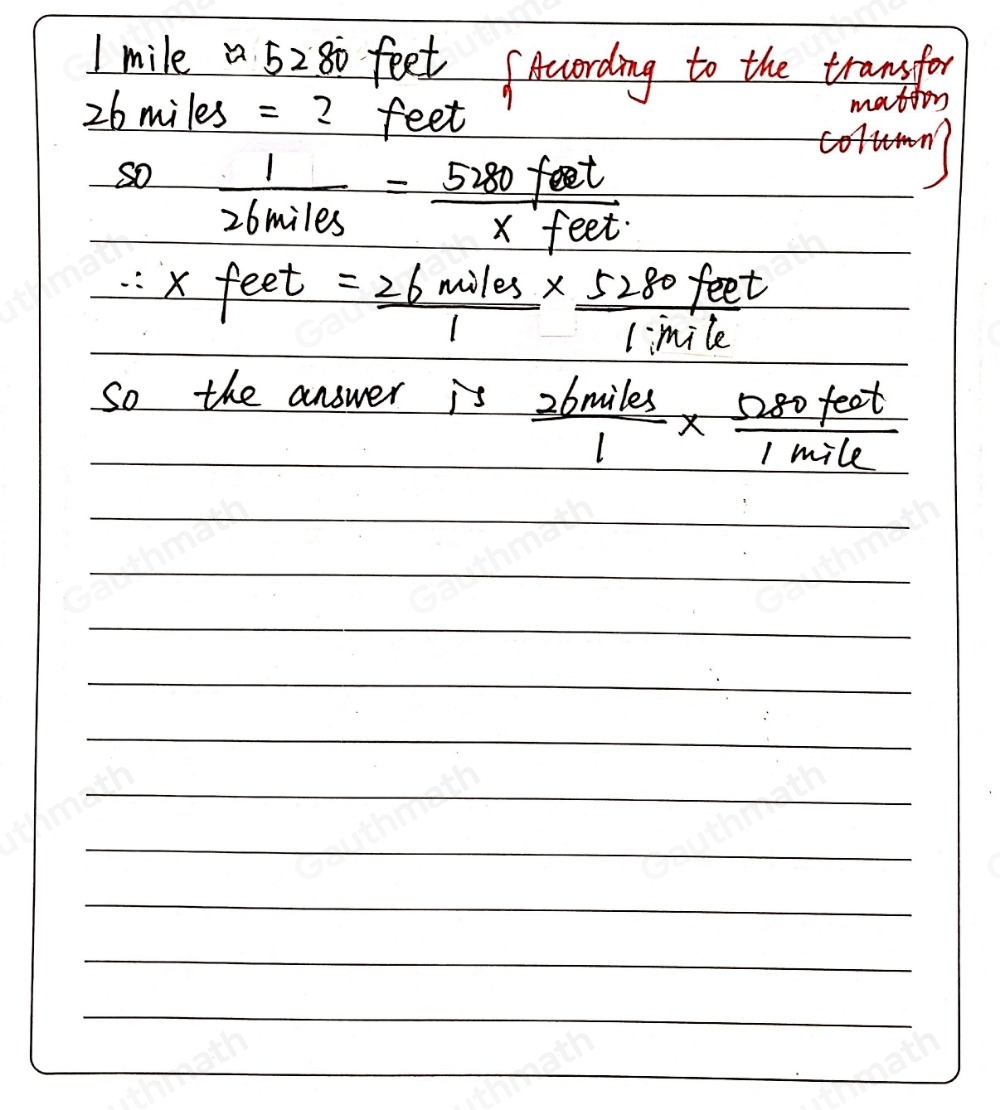 1 mile ≈ 5280 feet {According to the transfor
mation
column}
26 miles = ? feet
so 1/26 miles = 5280 feet/x feet.
∴ x feet = 26 miles/1 × 5280 feet/1 mile
so the answer is 26 miles/1 × 5280 feet/1 mile
Gauthmath